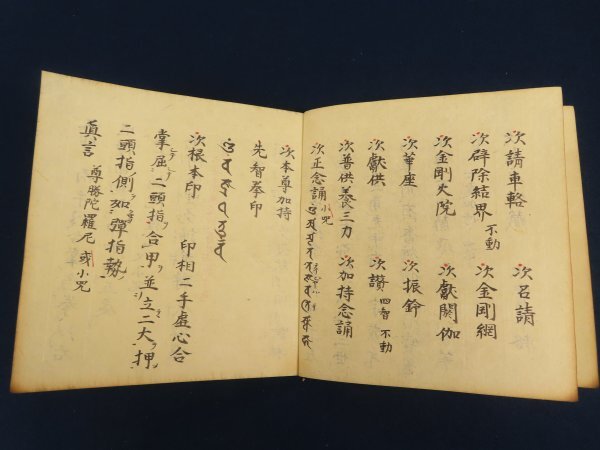 次請車輅 次召請
次辟除結界 不動 次金剛網
次金剛火院 次獻閼伽
次華座 次振鈴
次獻供 次讃 四智 不動
次普供養三力 次加持念誦
次正念誦 小咒
次本尊加持
先智拳印
次根本印 印相二手虚心合
掌屈二頭指合甲並立二大押
二頭指側如彈指勢
眞言 尊勝陀羅尼 或小咒